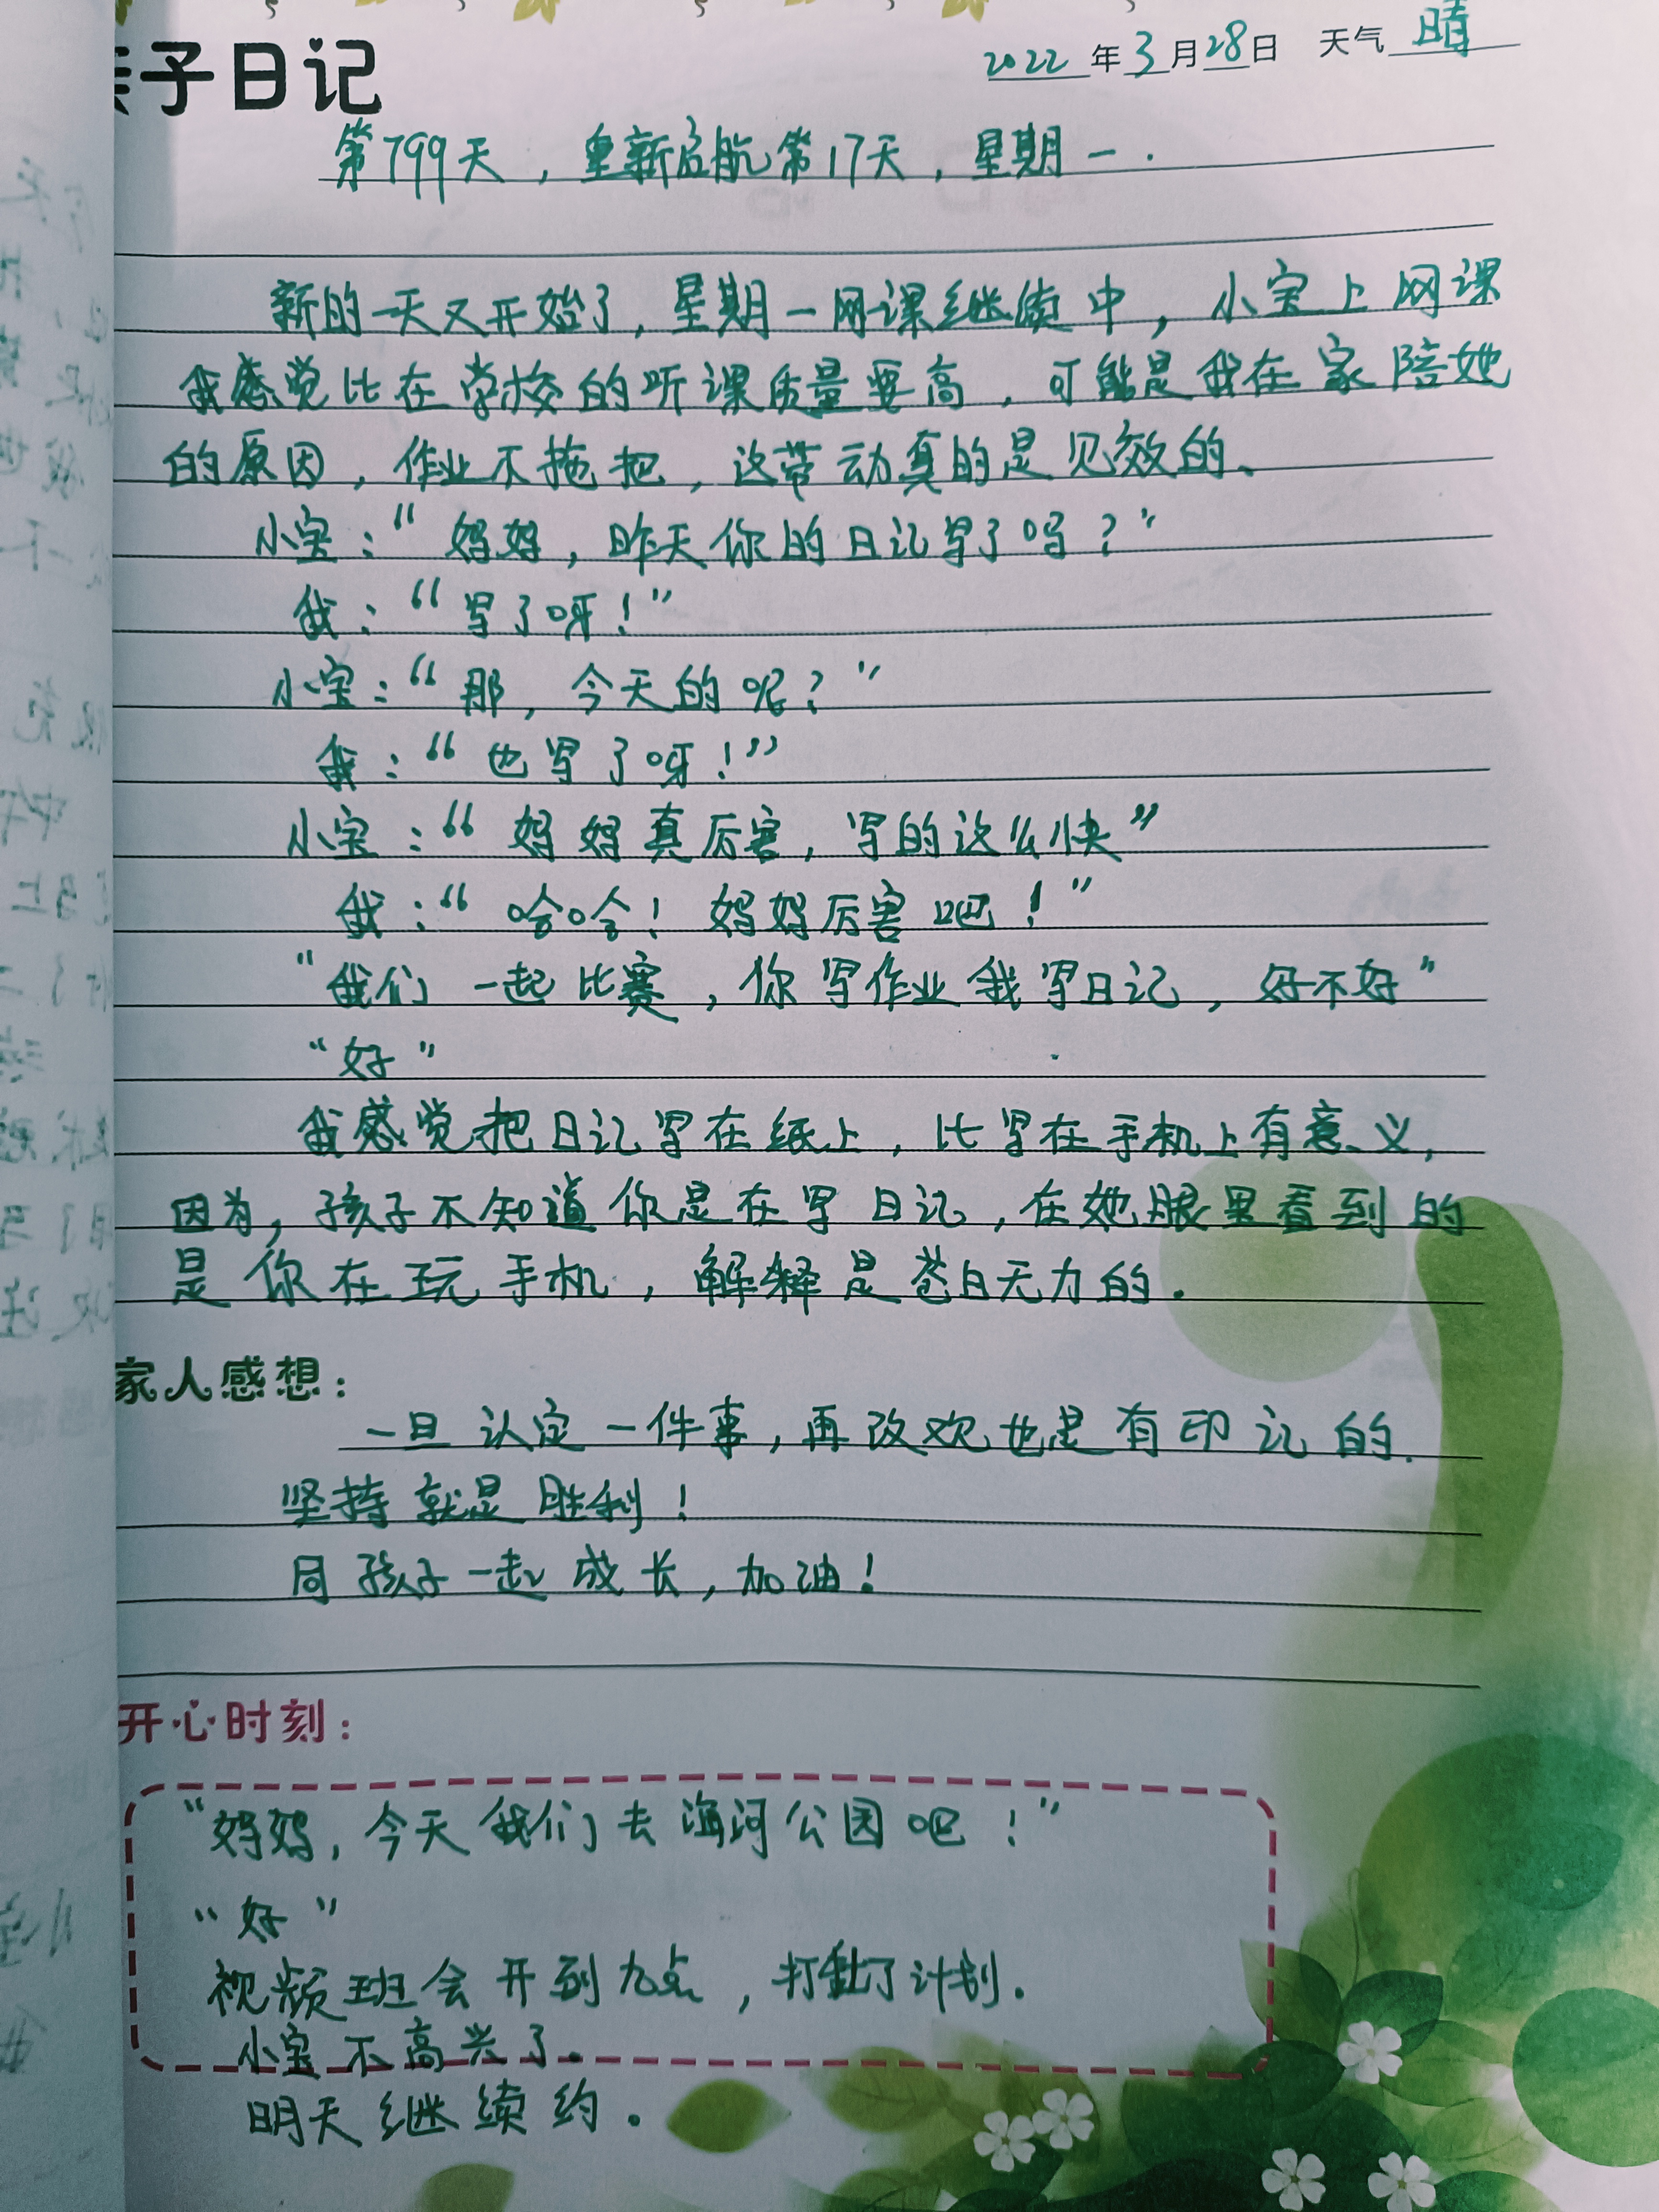 亲子日记
2022年3月28日 天气 晴
第799天，重新启航第17天，星期一.
新的一天又开始了，星期一网课继续中，小宝上网课
我感觉比在学校的听课质量要高，可能是我在家陪她
的原因，作业不拖把，这带动真的是见效的、
小宝：“妈妈，昨天你的日记写了吗？”
我：“写了呀！”
小宝：“那，今天的呢？”
我：“也写了呀！”
小宝：“妈妈真厉害，写的这么快”
我：“哈哈！妈妈厉害吧！”
“我们一起比赛，你写作业我写日记，好不好”
“好”
我感觉把日记写在纸上，比写在手机上有意义，
因为，孩子不知道你是在写日记，在她眼里看到的
是你在玩手机，解释是苍白无力的.
家人感想：
一旦认定一件事，再改欢也是有印记的.
坚持就是胜利！
同孩子一起成长，加油！
开心时刻：
“妈妈，今天我们去海河公园吧！”
“好”
视频班会开到九点，打乱了计划.
小宝不高兴了.
明天继续约.